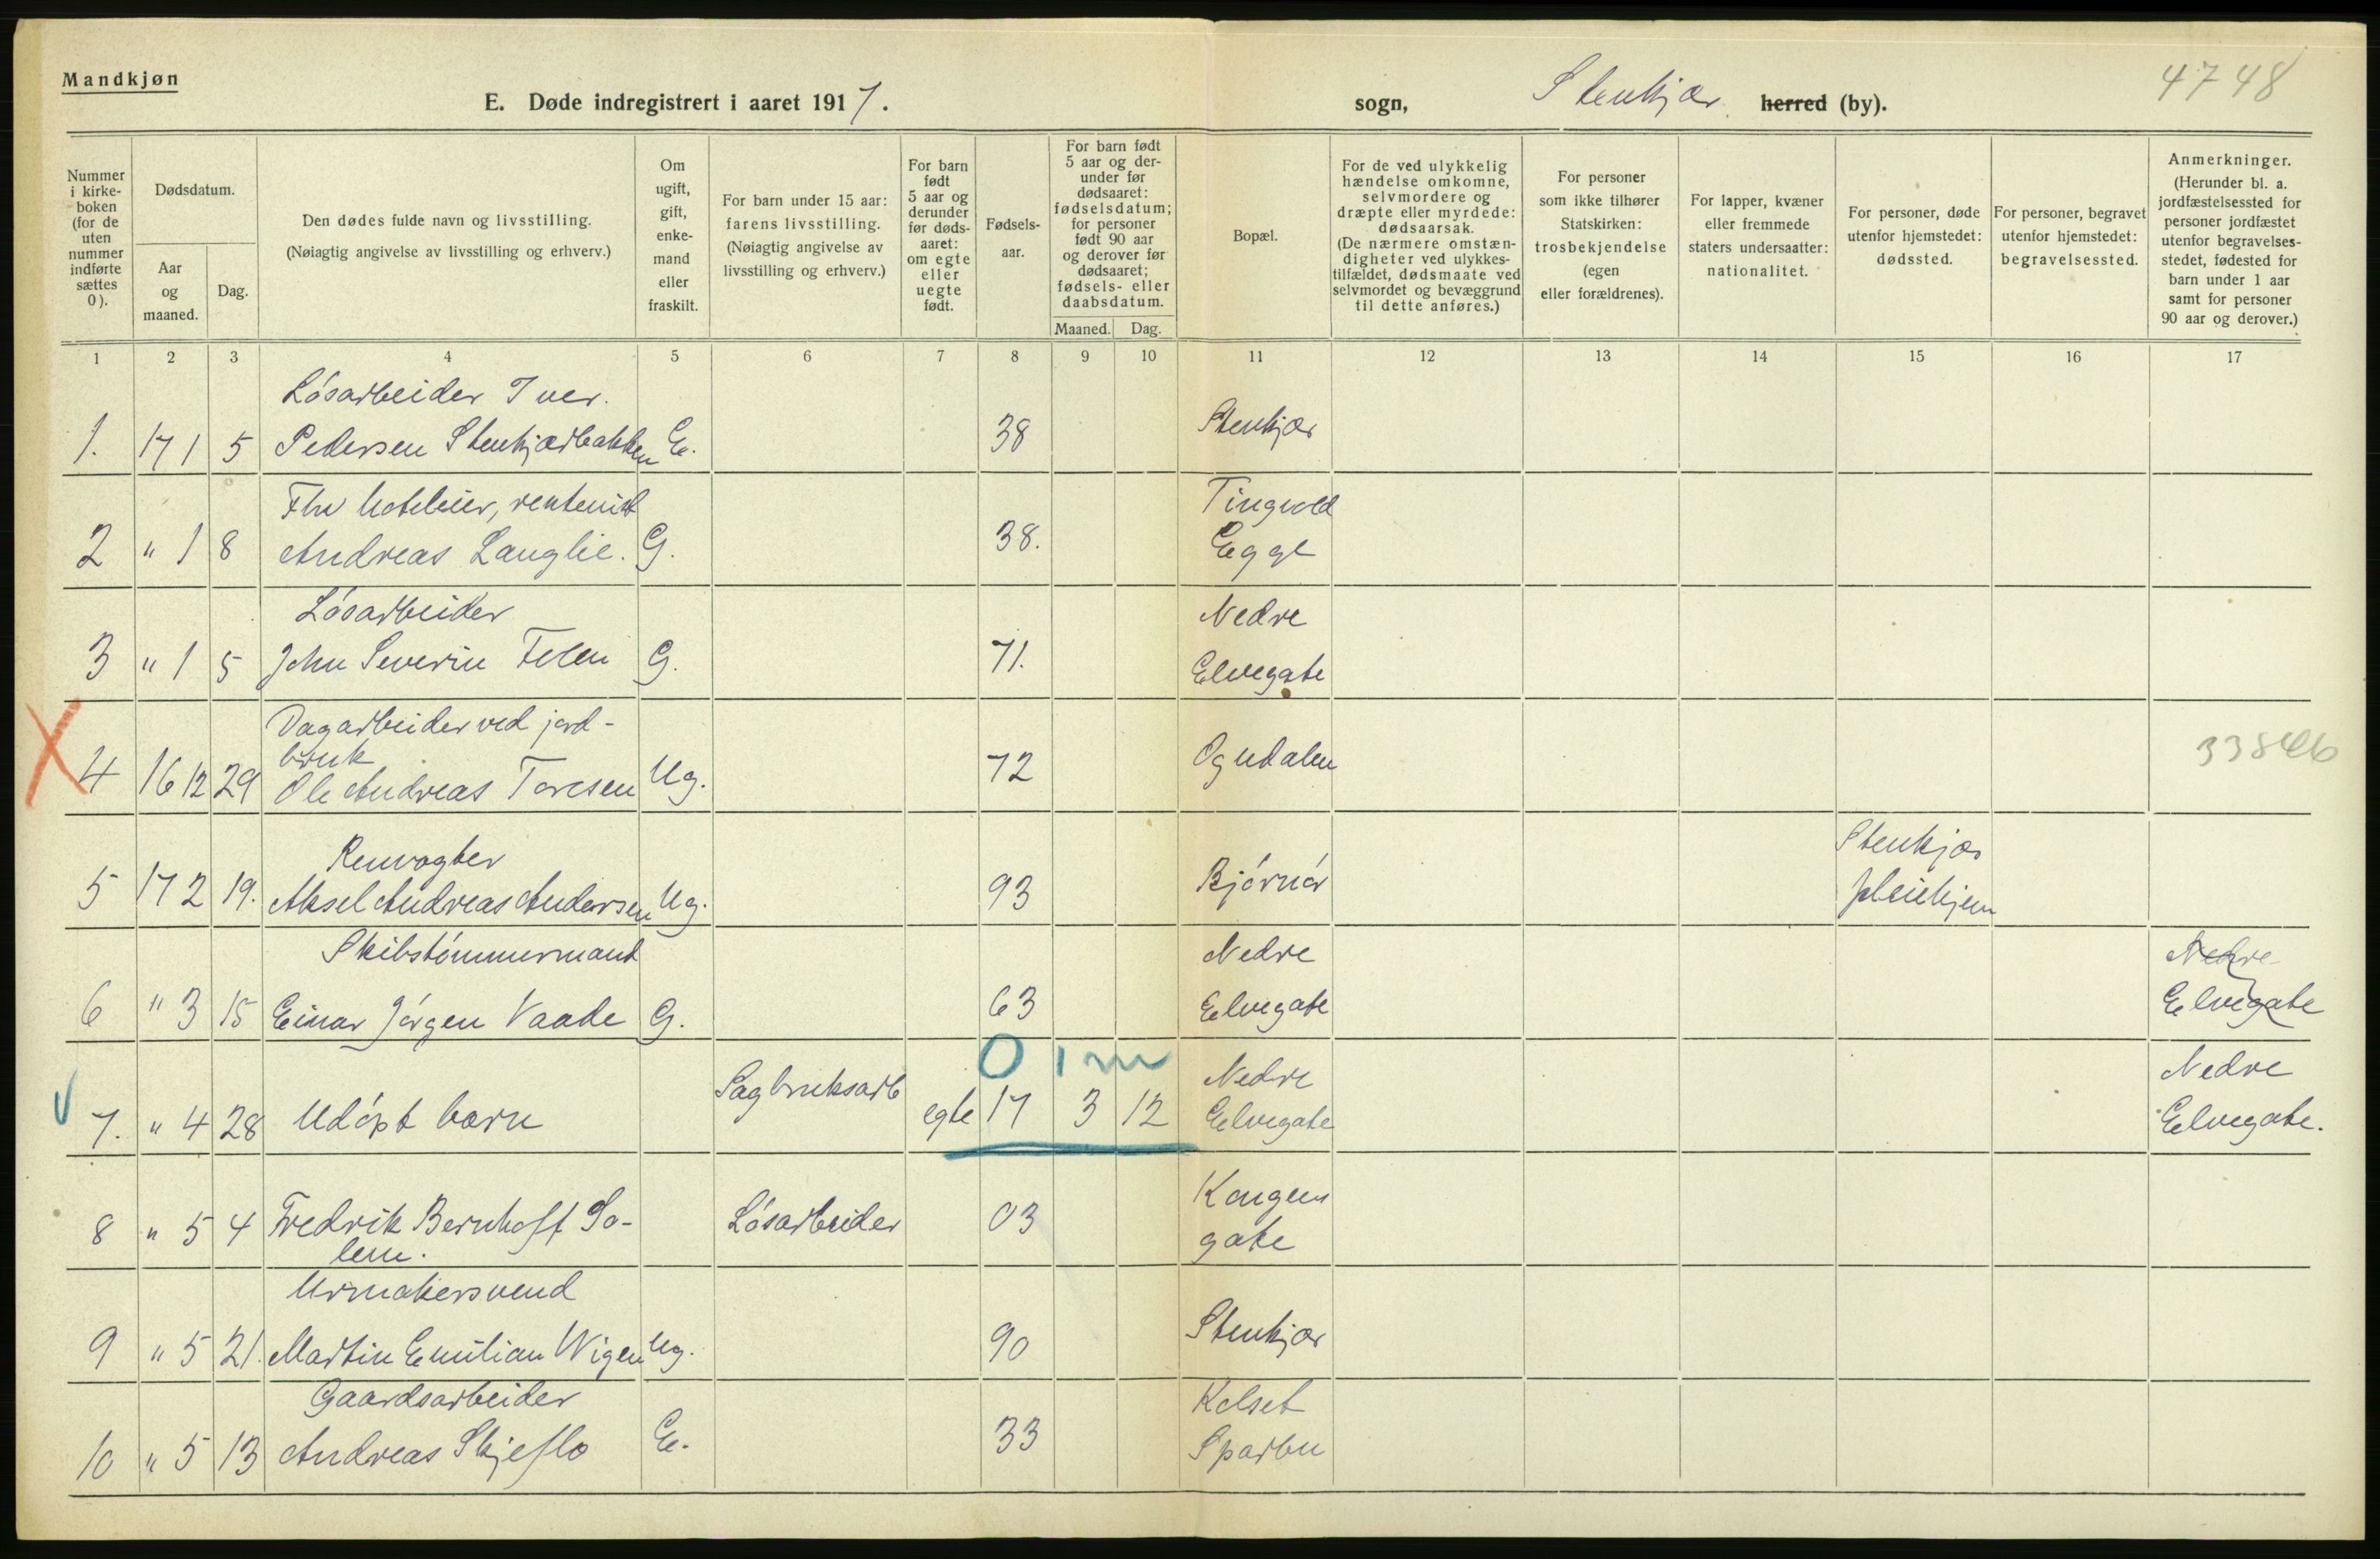 Mandkjøn
E. Døde indregistrert i aaret 1917.
sogn, Stenkjær herred (by).
4748
Nummer i kirke-boken (for de uten nummer indførte sættes 0).
Dødsdatum.
Aar og maaned.
Dag.
Den dødes fulde navn og livsstilling.
(Nøiagtig angivelse av livsstilling og erhverv.)
Om ugift, gift, enke-mand eller fraskilt.
For barn under 15 aar: farens livsstilling.
(Nøiagtig angivelse av livsstilling og erhverv.)
For barn født 5 aar og derunder før døds-aaret: om egte eller uegte født.
Fødsels-aar.
For barn født 5 aar og der-under før dødsaaret: fødselsdatum; for personer født 90 aar og derover før dødsaaret; fødsels- eller daabsdatum.
Maaned. Dag.
Bopæl.
For de ved ulykkelig hændelse omkomne, selvmordere og dræpte eller myrdede: dødsaarsak.
(De nærmere omstæn-digheter ved ulykkes-tilfældet, dødsmaate ved selvmordet og bevæggrund til dette anføres.)
For personer som ikke tilhører Statskirken: trosbekjendelse (egen eller forældrenes).
For lapper, kvæner eller fremmede staters undersaatter: nationalitet.
For personer, døde utenfor hjemstedet: dødssted.
For personer, begravet utenfor hjemstedet: begravelsessted.
Anmerkninger.
(Herunder bl. a. jordfæstelsessted for personer jordfæstet utenfor begravelses-stedet, fødested for barn under 1 aar samt for personer 90 aar og derover.)
1 2 3 4 5 6 7 8 9 10 11 12 13 14 15 16 17
Løsarbeider Iver.
1. 17 1 5 Pedersen Stenkjærbakken E. 38 Stenkjær
Fhv Hoteleier, rentenist Tingvold
2 " 1 8 Andreas Langlie. G. 38. Egge
Løsarbeider Nedre
3 " 1 5 John Severin Felen G. 71. Elvegate
Dagarbeider ved jord-
bruk
X 4 16 12 29 Ole Andreas Toresen Ug. 72 Ogndalen 33846
Renvogter Stenkjær
5 17 2 19. Aksel Andreas Andersen Ug. 93 Bjørnør pleiehjem
Skibstømmermand Nedre Nedre
6 " 3 15 Einar Jørgen Vaade G. 63 Elvegate Elvegate
0 1 m
Sagbruksarb Nedre Nedre
7. " 4 28 Udøpt barn egte 17 3 12 Elvegate Elvegate.
8 " 5 4 Fredrik Bernhoff So- Løsarbeider 03 Kongens
lem. gate
Urmakersvend
9 " 5 21. Martin Emilian Wigen Ug. 90 Stenkjær
Gaardsarbeider Kolset
10 " 5 13 Andreas Skjeflo E. 33 Sparbu